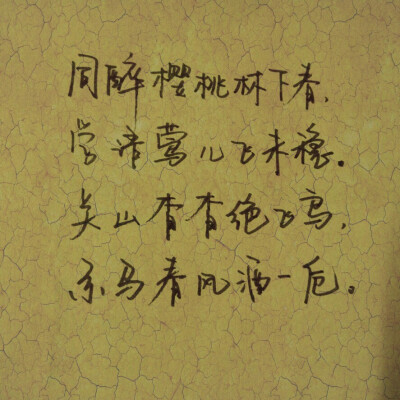 同醉樱桃林下春，
学语莺儿飞未稳。
关山杳杳绝飞鸟，
系马春风酒一卮。